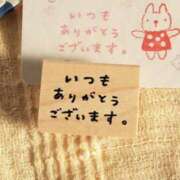 いつも
ありがとう
ございます。
いつも
ありがとう
ございます。